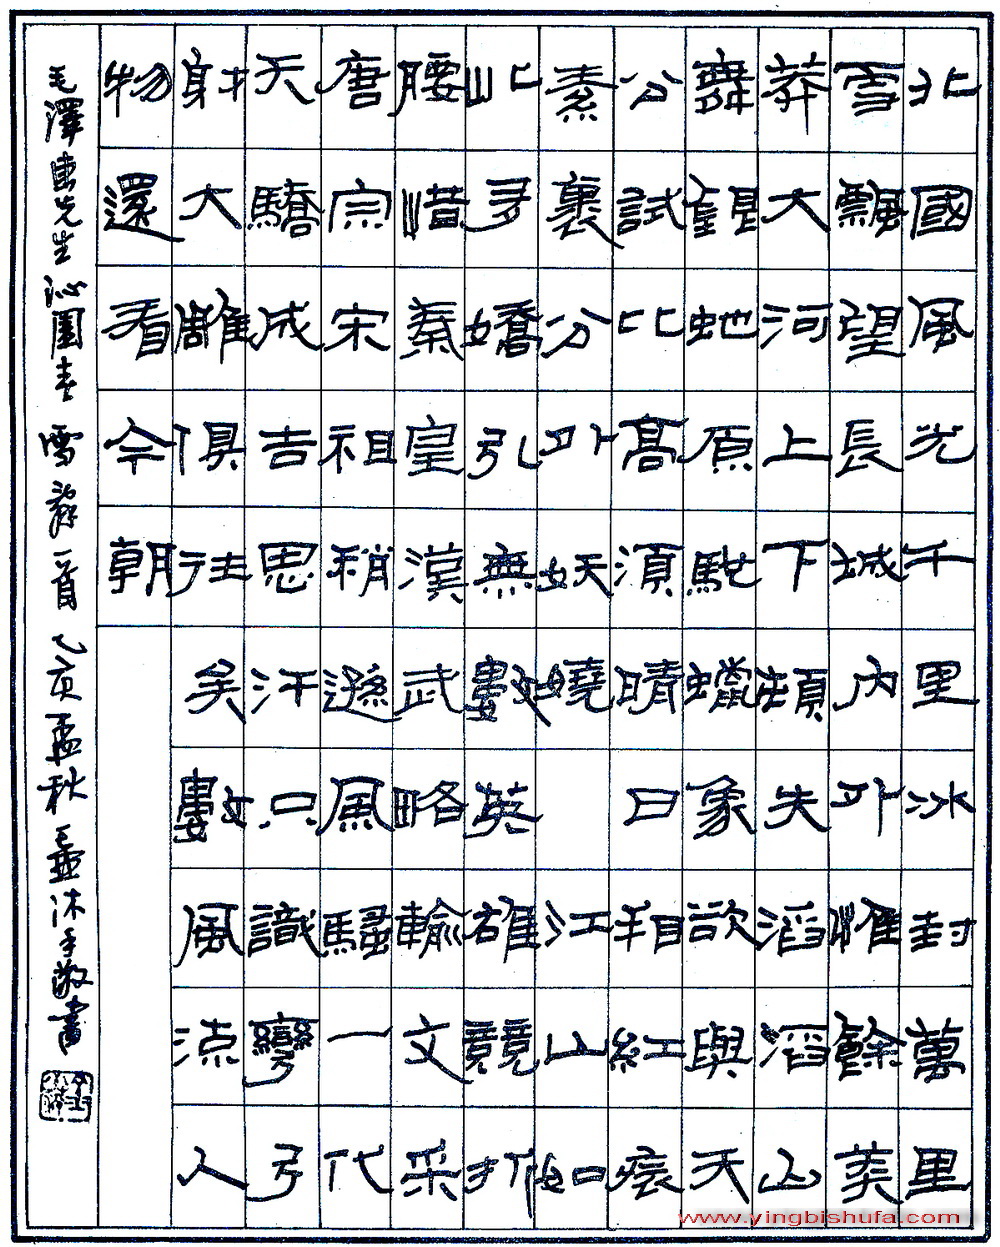 北國風光千里冰封萬里
雪飄望長城內外惟餘莽
莽大河上下頓失滔滔山
舞銀蛇原馳蠟象欲與天
公試比高須晴日看紅裝
素裹分外妖嬈 江山如
此多嬌引無數英雄競折
腰惜秦皇漢武略輸文采
唐宗宋祖稍遜風騷一代
天驕成吉思汗只識彎弓
射大雕俱往矣數風流人
物還看今朝
毛澤東先生沁園春雪詞一首乙亥孟秋沐手敬書
www.yingbishufa.com